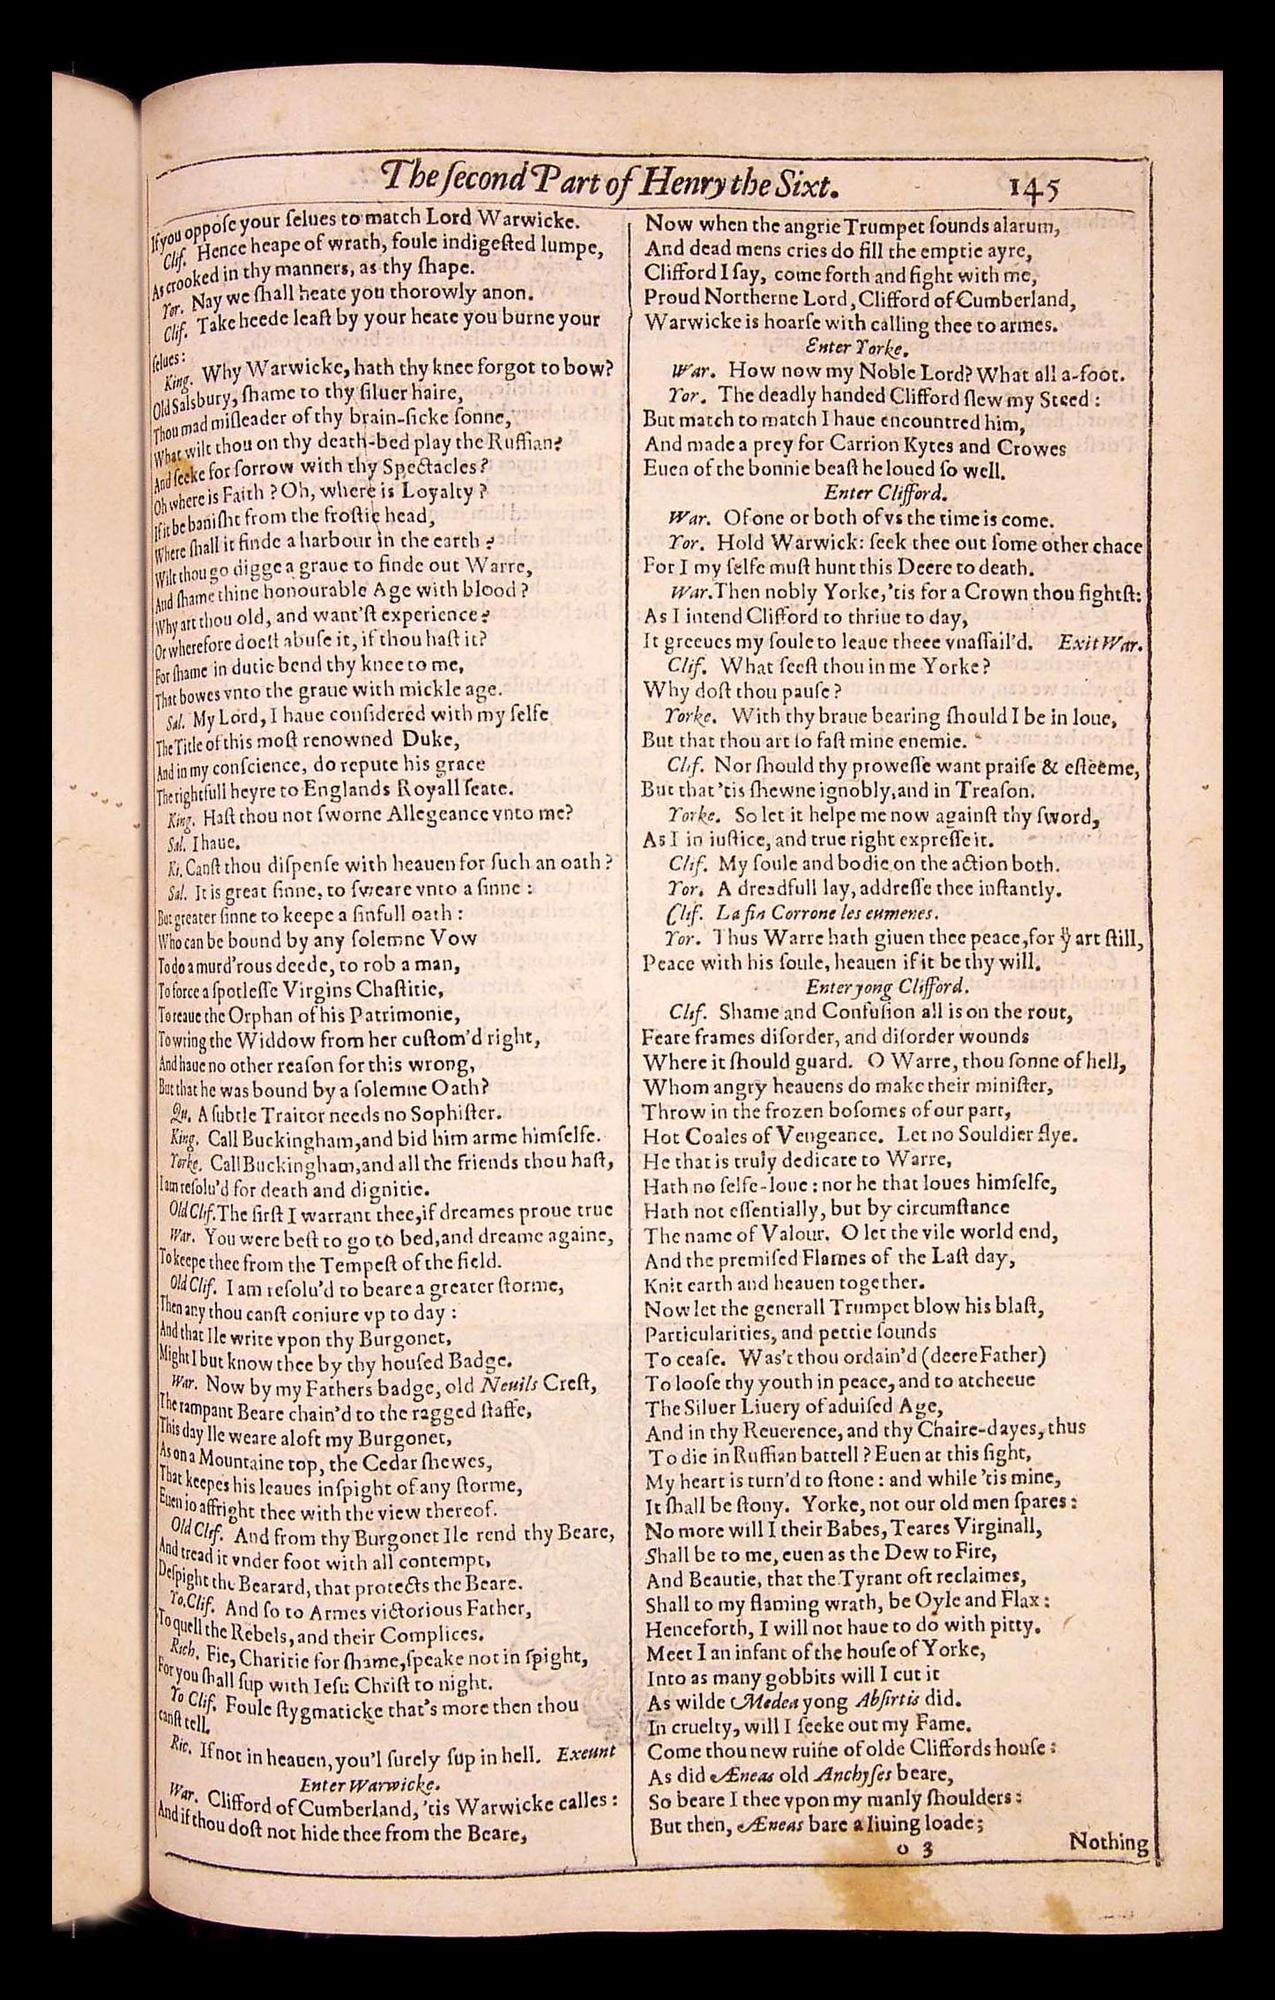 The ſecond Part of Henry the Sixt. 145
If you oppoſe your ſelues to match Lord Warwicke.
Clif. Hence heape of wrath, foule indigeſted lumpe,
As crooked in thy manners, as thy ſhape.
Yor. Nay we ſhall heate you thorowly anon.
Clif. Take heede leaſt by your heate you burne your
ſelues:
King. Why Warwicke, hath thy knee forgot to bow?
Old Salsbury, ſhame to thy ſiluer haire,
Thou mad miſleader of thy brain-ſicke ſonne,
What wilt thou on thy death-bed play the Ruffian?
And ſeeke for ſorrow with thy Spectacles?
Oh where is Faith? Oh, where is Loyalty?
If it be baniſht from the froſtie head,
Where ſhall it finde a harbour in the earth?
Wilt thou go digge a graue to finde out Warre,
And ſhame thine honourable Age with blood?
Why art thou old, and want'ſt experience?
Or wherefore doeſt abuſe it, if thou haſt it?
For ſhame in dutie bend thy knee to me,
That bowes vnto the graue with mickle age.
Sal. My Lord, I haue conſidered with my ſelfe
The Title of this moſt renowned Duke,
And in my conſcience, do repute his grace
The rightfull heyre to Englands Royall ſeate.
King. Haſt thou not ſworne Allegeance vnto me?
Sal. I haue.
Ki. Canſt thou diſpenſe with heauen for ſuch an oath?
Sal. It is great ſinne, to ſweare vnto a ſinne:
But greater ſinne to keepe a ſinfull oath:
Who can be bound by any ſolemne Vow
To do a murd'rous deede, to rob a man,
To force a ſpotleſſe Virgins Chaſtitie,
To reaue the Orphan of his Patrimonie,
To wring the Widdow from her cuſtom'd right,
And haue no other reaſon for this wrong,
But that he was bound by a ſolemne Oath?
Qu. A ſubtle Traitor needs no Sophiſter.
King. Call Buckingham, and bid him arme himſelfe.
Yorke. Call Buckingham, and all the friends thou haſt,
I am reſolu'd for death and dignitie.
Old Clif. The firſt I warrant thee, if dreames proue true
War. You were beſt to go to bed, and dreame againe,
To keepe thee from the Tempeſt of the field.
Old Clif. I am reſolu'd to beare a greater ſtorme,
Then any thou canſt coniure vp to day:
And that Ile write vpon thy Burgonet,
Might I but know thee by thy houſed Badge.
War. Now by my Fathers badge, old Neuils Creſt,
The rampant Beare chain'd to the ragged ſtaffe,
This day Ile weare aloft my Burgonet,
As on a Mountaine top, the Cedar ſhewes,
That keepes his leaues inſpight of any ſtorme,
Euen io affright thee with the view thereof.
Old Clif. And from thy Burgonet Ile rend thy Beare,
And tread it vnder foot with all contempt,
Deſpight the Bearard, that protects the Beare.
Yo. Clif. And ſo to Armes victorious Father,
To quell the Rebels, and their Complices.
Rich. Fie, Charitie for ſhame, ſpeake not in ſpight,
For you ſhall ſup with Ieſu Chriſt to night.
Yo Clif. Foule ſtygmaticke that's more then thou
canſt tell.
Ric. If not in heauen, you'l ſurely ſup in hell. Exeunt
Enter Warwicke.
War. Clifford of Cumberland, 'tis Warwicke calles:
And if thou doſt not hide thee from the Beare,
Now when the angrie Trumpet ſounds alarum,
And dead mens cries do fill the emptie ayre,
Clifford I ſay, come forth and fight with me,
Proud Northerne Lord, Clifford of Cumberland,
Warwicke is hoarſe with calling thee to armes.
Enter Yorke.
War. How now my Noble Lord? What all a-foot.
Yor. The deadly handed Clifford ſlew my Steed:
But match to match I haue encountred him,
And made a prey for Carrion Kytes and Crowes
Euen of the bonnie beaſt he loued ſo well.
Enter Clifford.
War. Of one or both of vs the time is come.
Yor. Hold Warwick: ſeek thee out ſome other chace
For I my ſelfe muſt hunt this Deere to death.
War. Then nobly Yorke, 'tis for a Crown thou fightſt:
As I intend Clifford to thriue to day,
It greeues my ſoule to leaue theee vnaſſail'd. Exit War.
Clif. What ſeeſt thou in me Yorke?
Why doſt thou pauſe?
Yorke. With thy braue bearing ſhould I be in loue,
But that thou art ſo faſt mine enemie.
Clif. Nor ſhould thy proweſſe want praiſe & eſteeme,
But that 'tis ſhewne ignobly, and in Treaſon.
Yorke. So let it helpe me now againſt thy ſword,
As I in iuſtice, and true right expreſſe it.
Clif. My ſoule and bodie on the action both.
Yor. A dreadfull lay, addreſſe thee inſtantly.
Clif. La fin Corrone les eumenes.
Yor. Thus Warre hath giuen thee peace, for yͧ art ſtill,
Peace with his ſoule, heauen if it be thy will.
Enter yong Clifford.
Clif. Shame and Confuſion all is on the rout,
Feare frames diſorder, and diſorder wounds
Where it ſhould guard. O Warre, thou ſonne of hell,
Whom angry heauens do make their miniſter,
Throw in the frozen boſomes of our part,
Hot Coales of Vengeance. Let no Souldier flye.
He that is truly dedicate to Warre,
Hath no ſelfe-loue: nor he that loues himſelfe,
Hath not eſſentially, but by circumſtance
The name of Valour. O let the vile world end,
And the premiſed Flames of the Laſt day,
Knit earth and heauen together.
Now let the generall Trumpet blow his blaſt,
Particularities, and pettie ſounds
To ceaſe. Was't thou ordain'd (deere Father)
To looſe thy youth in peace, and to atcheeue
The Siluer Liuery of aduiſed Age,
And in thy Reuerence, and thy Chaire-dayes, thus
To die in Ruffian battell? Euen at this ſight,
My heart is turn'd to ſtone: and while 'tis mine,
It ſhall be ſtony. Yorke, not our old men ſpares:
No more will I their Babes, Teares Virginall,
Shall be to me, euen as the Dew to Fire,
And Beautie, that the Tyrant oft reclaimes,
Shall to my flaming wrath, be Oyle and Flax:
Henceforth, I will not haue to do with pitty.
Meet I an infant of the houſe of Yorke,
Into as many gobbits will I cut it
As wilde Medea yong Abſirtis did.
In cruelty, will I ſeeke out my Fame.
Come thou new ruine of olde Cliffords houſe:
As did Æneas old Anchyſes beare,
So beare I thee vpon my manly ſhoulders:
But then, Æneas bare a liuing loade;
o 3 Nothing